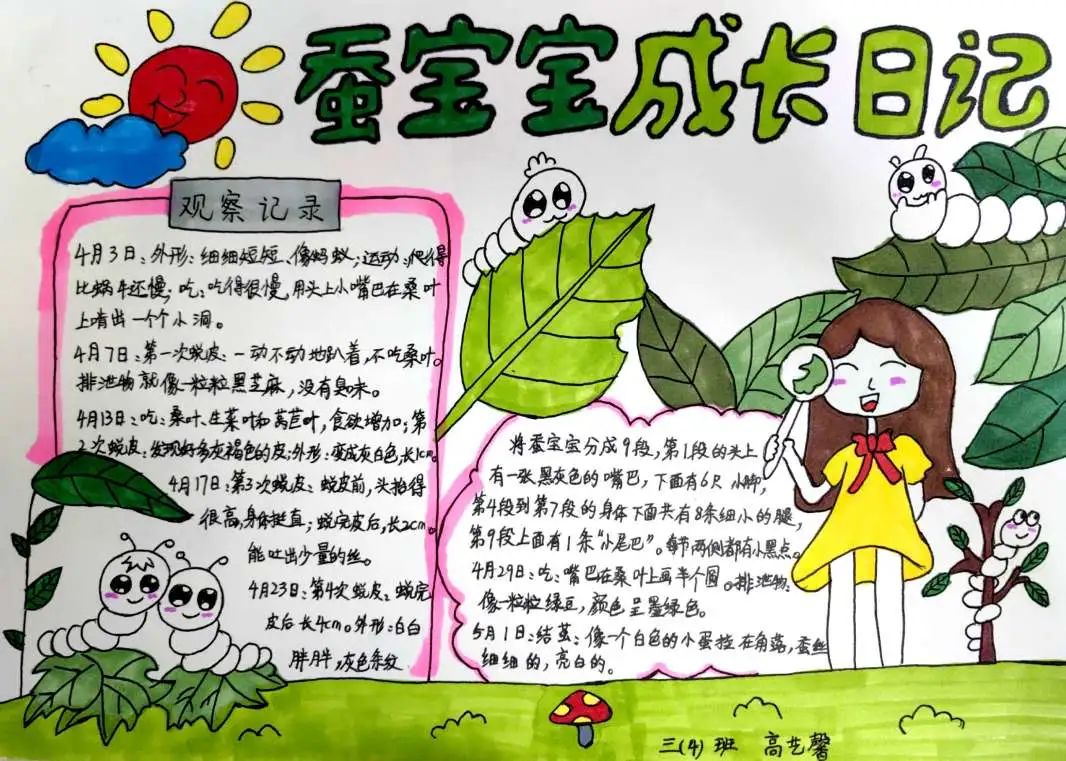 蚕宝宝成长日记
观察记录
4月3日:外形:细细短短,像蚂蚁;运动:爬得
比蜗牛还慢;吃:吃得很慢,用头上小嘴巴在桑叶
上啃出一个个小洞。
4月7日:第一次蜕皮:一动不动地趴着,不吃桑叶。
排泄物就像一粒粒黑芝麻,没有臭味。
4月13日:吃:桑叶、生菜叶和莴苣叶,食欲增加;第
2次蜕皮:发现好多灰褐色的皮;外形:变成灰白色,长1cm。
4月17日:第3次蜕皮:蜕皮前,头抬得
很高,身体挺直;蜕完皮后,长2cm。
能吐出少量的丝。
4月23日:第4次蜕皮:蜕完
皮后长4cm。外形:白白
胖胖,灰色条纹
将蚕宝宝分成9段,第1段的头上
有一张黑灰色的嘴巴,下面有6只小脚,
第4段到第7段的身体下面共有8条细小的腿,
第9段上面有1条“小尾巴”。每节两侧都有小黑点。
4月29日:吃:嘴巴在桑叶上画半个圆。排泄物:
像一粒粒绿豆,颜色呈墨绿色。
5月1日:结茧:像一个白色的小蛋挂在角落,蚕丝
细细的,亮白的。
三(4)班 高艺馨